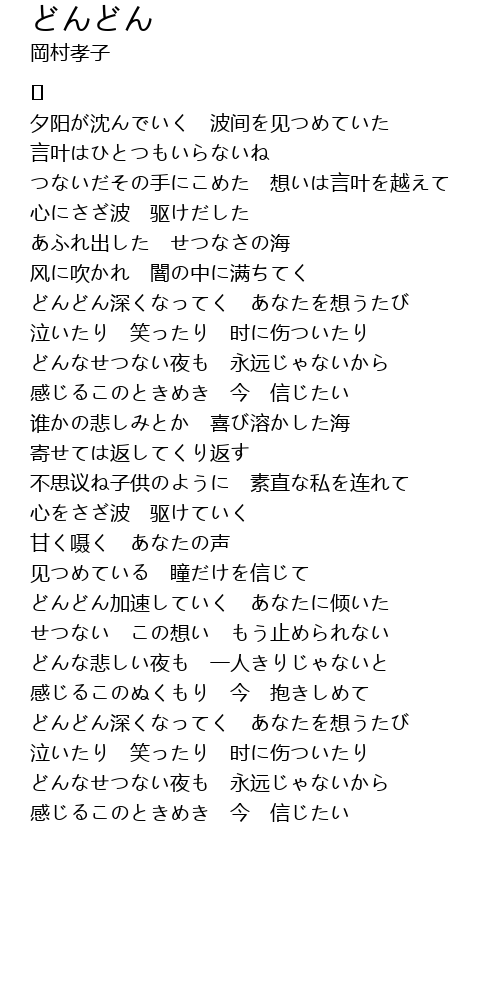 どんどん
岡村孝子
夕阳が沈んでいく　波间を见つめていた
言叶はひとつもいらないね
つないだその手にこめた　想いは言叶を越えて
心にさざ波　驱けだした
あふれ出した　せつなさの海
风に吹かれ　闇の中に满ちてく
どんどん深くなってく　あなたを想うたび
泣いたり　笑ったり　时に伤ついたり
どんなせつない夜も　永远じゃないから
感じるこのときめき　今　信じたい
谁かの悲しみとか　喜び溶かした海
寄せては返してくり返す
不思议ね子供のように　素直な私を连れて
心をさざ波　驱けていく
甘く嗫く　あなたの声
见つめている　瞳だけを信じて
どんどん加速していく　あなたに倾いた
せつない　この想い　もう止められない
どんな悲しい夜も　一人きりじゃないと
感じるこのぬくもり　今　抱きしめて
どんどん深くなってく　あなたを想うたび
泣いたり　笑ったり　时に伤ついたり
どんなせつない夜も　永远じゃないから
感じるこのときめき　今　信じたい